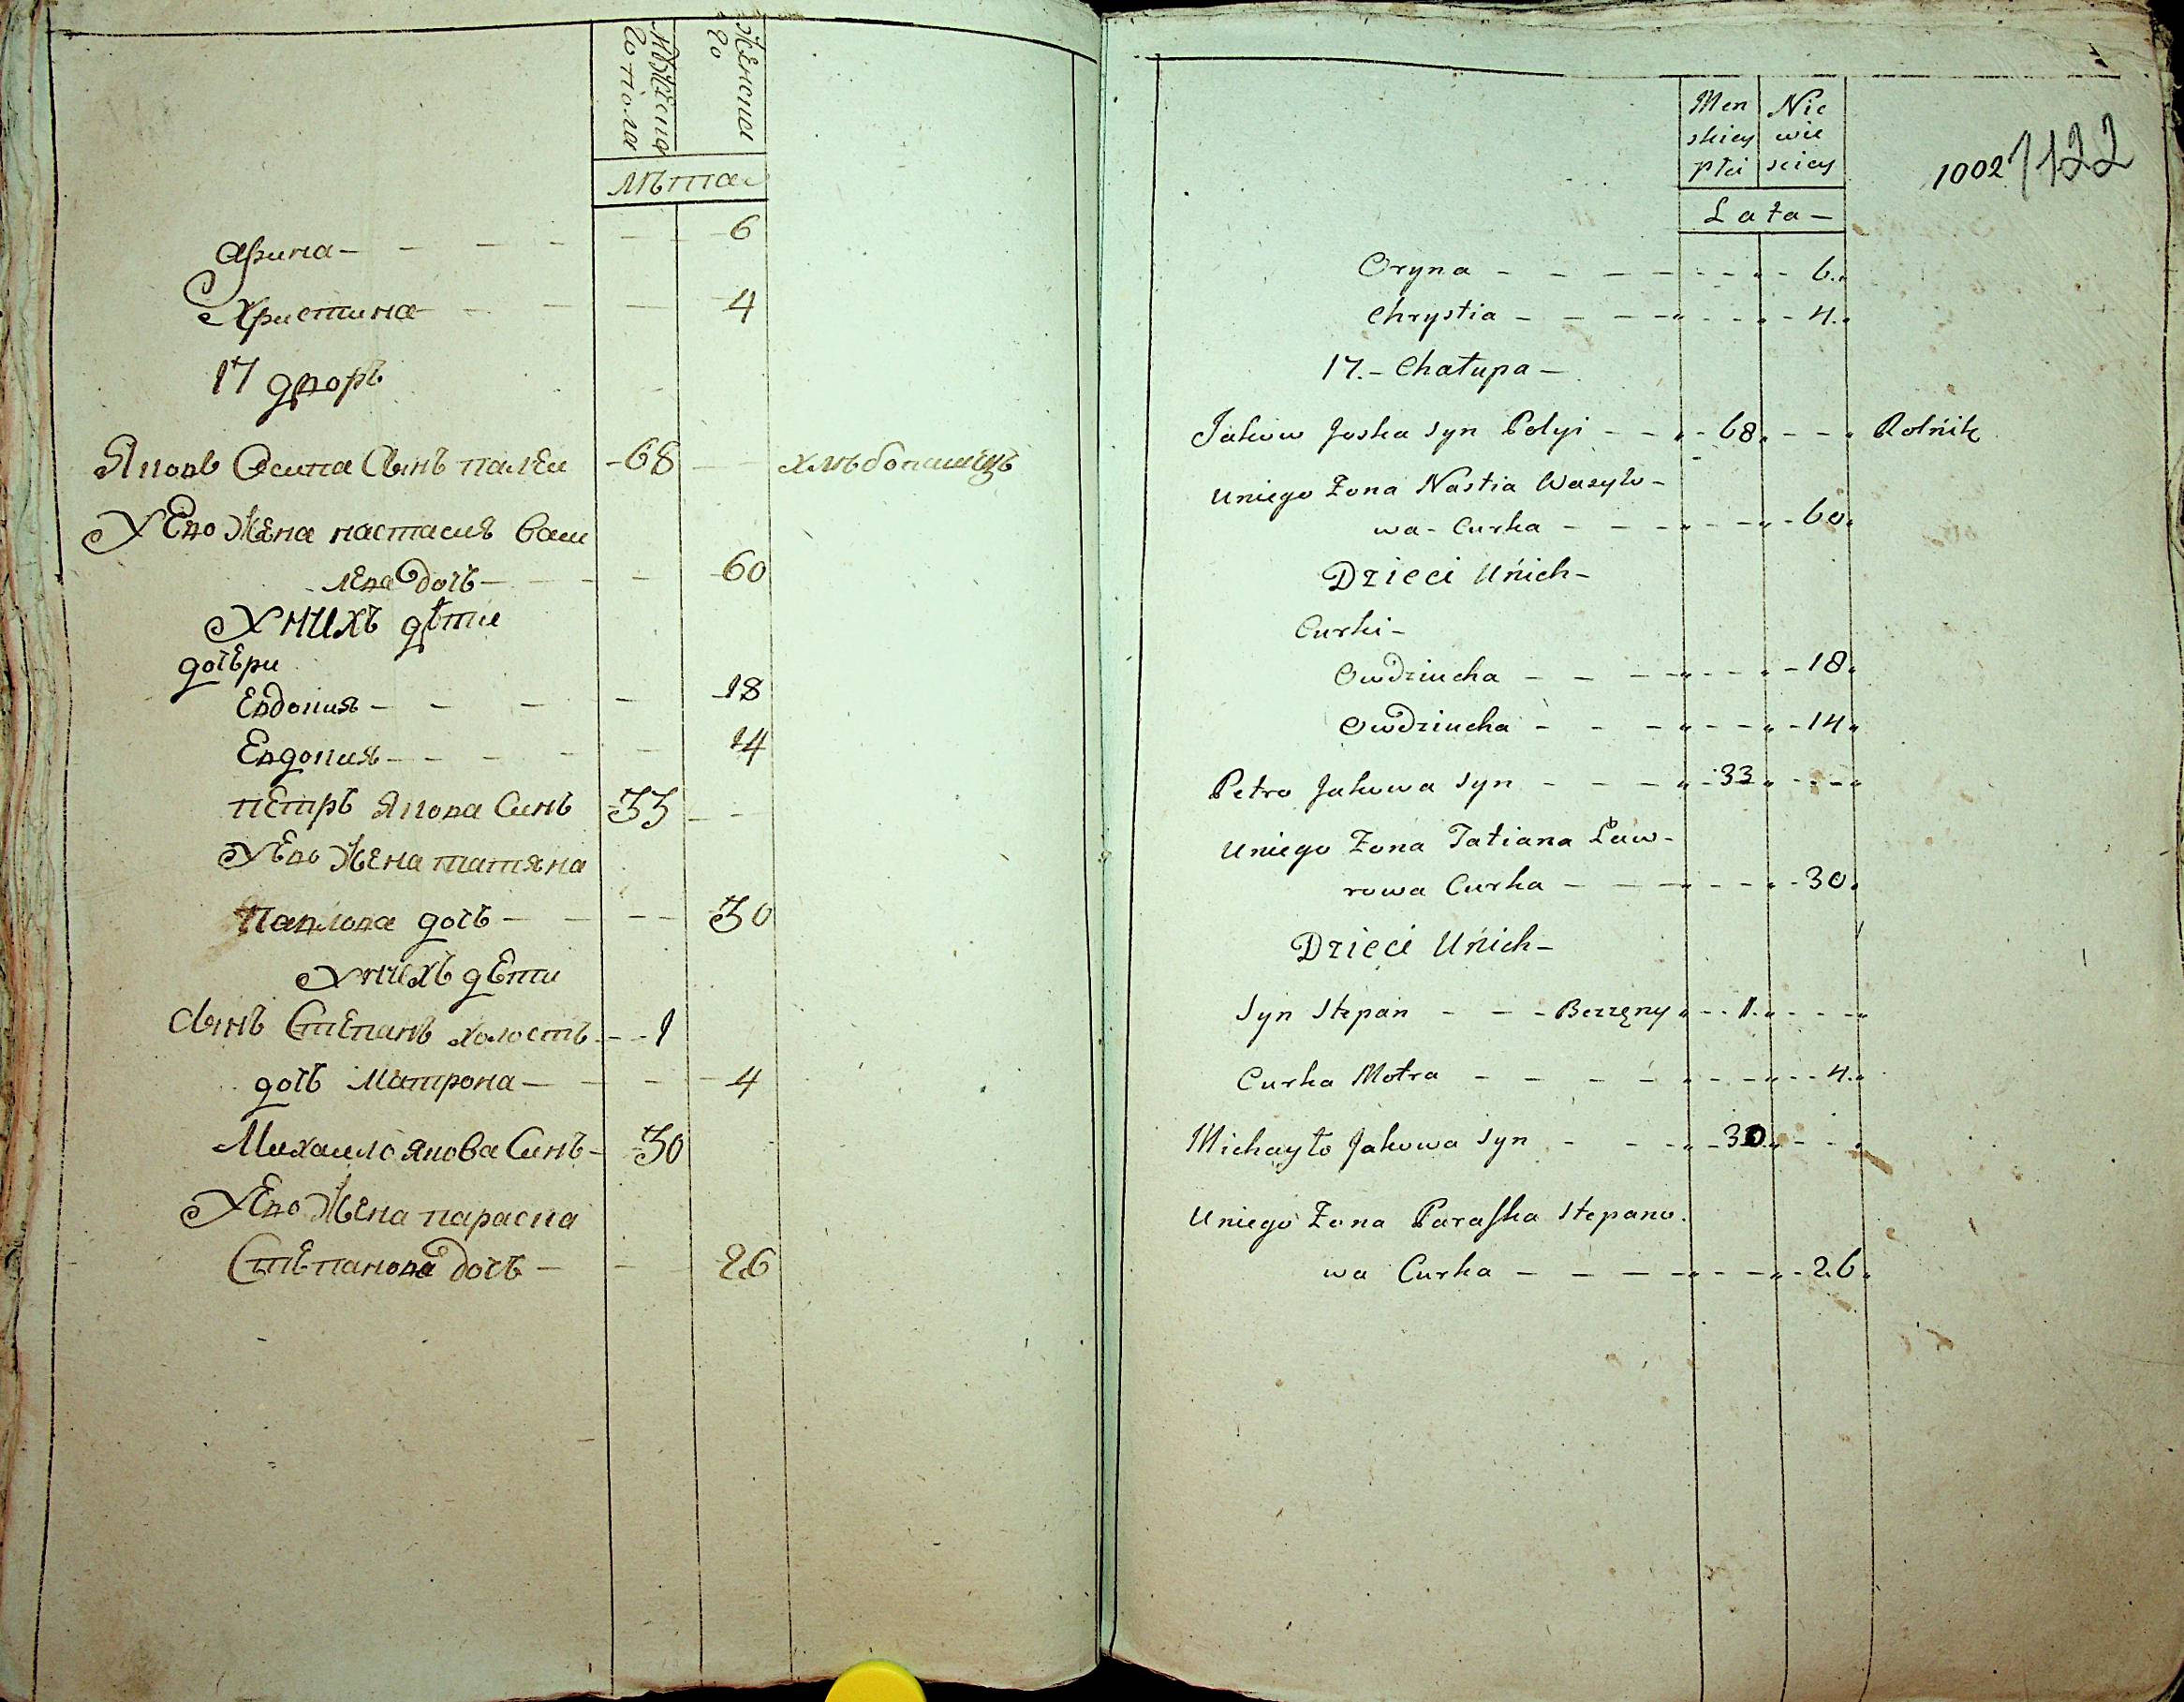 мужеска
го пола
женска
го
лѣта
Арина — 6
Христина — 4
17 дворъ
Яковъ Осипа Сынъ палѣи — 68 хлѣбопашецъ
У Его Жена настасия васи
лева дочь — 60
У нихъ дѣти
дочѣри
Евдокия — 18
Евдокия — 14
пѣтръ Якова Синъ 33
У Его Жена татяна
Павлова дочь — 30
У нихъ дѣти
Сынъ Стѣпанъ холостъ — 1
дочь Матрона — 4
Михаило Якова Синъ — 30
У Его Жена параска
Стѣпанова дочь — 26
Men
skiey
płci
Nie
wie
sciey
1002 1122
Lata —
Oryna — 6.
Chrystia — 4.
17. — Chałupa —
Jakow Joska syn Polyi — 68 Rolnik
Uniego Żona Nastia Wasylo-
wa - Curka — 60
Dzieci Unich —
Curki —
Owdziucha — 18
Owdziucha — 14
Petro Jakowa syn — 33
Uniego Żona Tatiana Ław-
rowa Curka — 30
Dzieci Unich —
Syn Stepan — Bezzęny 1.
Curka Motra — 4.
Michayło Jakowa syn — 30
Uniego Żona Paraska Stepano.
wa Curka — 26